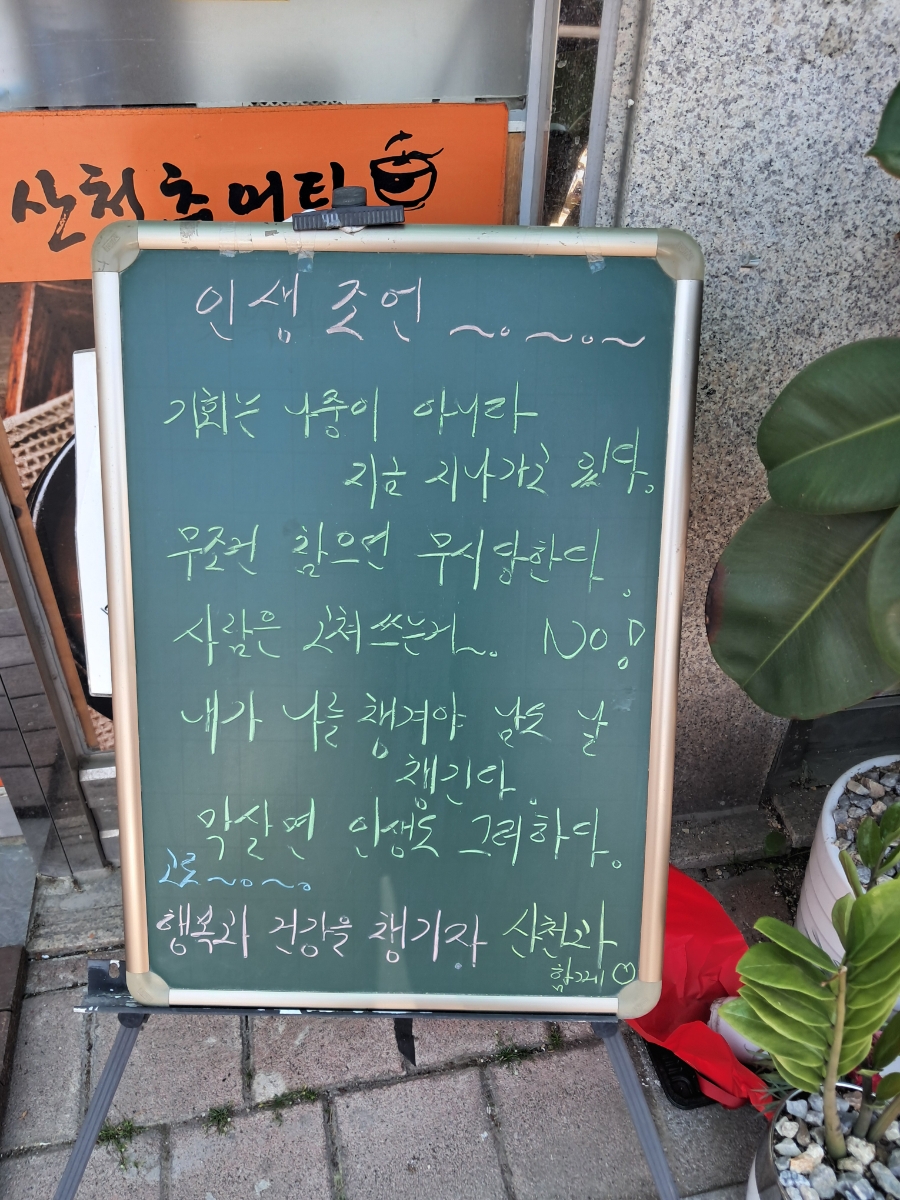 산천추어탕
인생 조언 ~.~.~
기회는 나중이 아니라
지금 지나가고 있다.
무조건 참으면 무시당한다.
사람은 고쳐쓰는거~. NO!
내가 나를 챙겨야 남도 날
챙긴다.
막살면 인생도 그러하다.
고로~.~.
행복과 건강을 챙기자 산천과
함께 ♡